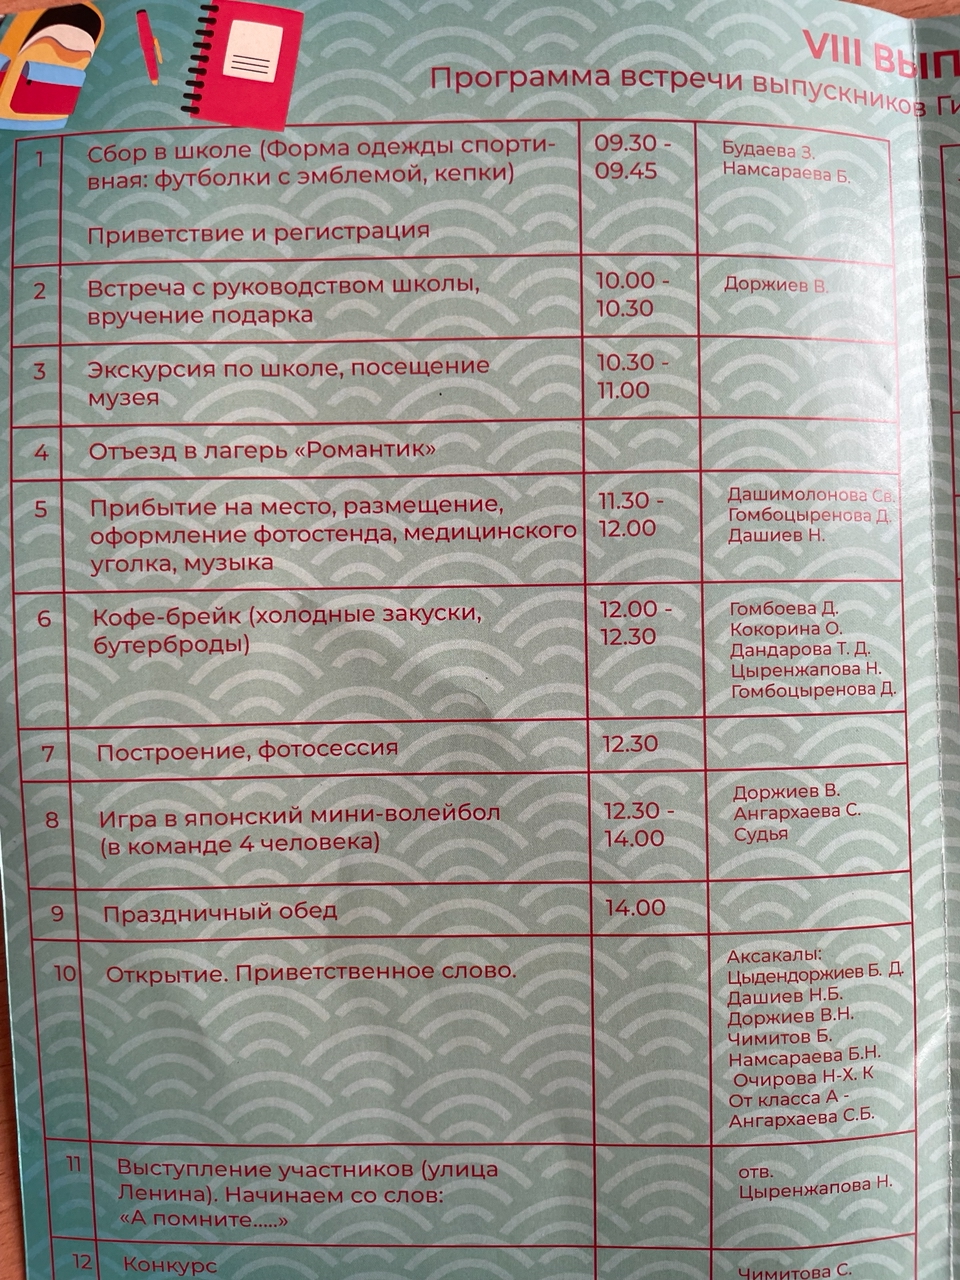 VIII ВЫП
Программа встречи выпускников Ги
1
Сбор в школе (Форма одежды спорти-
вная: футболки с эмблемой, кепки)
Приветствие и регистрация
09.30 -
09.45
Будаева З.
Намсараева Б.
2
Встреча с руководством школы,
вручение подарка
10.00 -
10.30
Доржиев В.
3
Экскурсия по школе, посещение
музея
10.30 -
11.00
4
Отъезд в лагерь «Романтик»
5
Прибытие на место, размещение,
оформление фотостенда, медицинского
уголка, музыка
11.30 -
12.00
Дашимолонова Св.
Гомбоцыренова Д.
Дашиев Н.
6
Кофе-брейк (холодные закуски,
бутерброды)
12.00 -
12.30
Гомбоева Д.
Кокорина О.
Дандарова Т. Д.
Цыренжапова Н.
Гомбоцыренова Д.
7
Построение, фотосессия
12.30
8
Игра в японский мини-волейбол
(в команде 4 человека)
12.30 -
14.00
Доржиев В.
Ангархаева С.
Судья
9
Праздничный обед
14.00
10
Открытие. Приветственное слово.
Аксакалы:
Цыдендоржиев Б. Д.
Дашиев Н.Б.
Доржиев В.Н.
Чимитов Б.
Намсараева Б.Н.
Очирова Н-Х. К
От класса А -
Ангархаева С.Б.
11
Выступление участников (улица
Ленина). Начинаем со слов:
«А помните.....»
отв.
Цыренжапова Н.
12
Конкурс
Чимитова С.